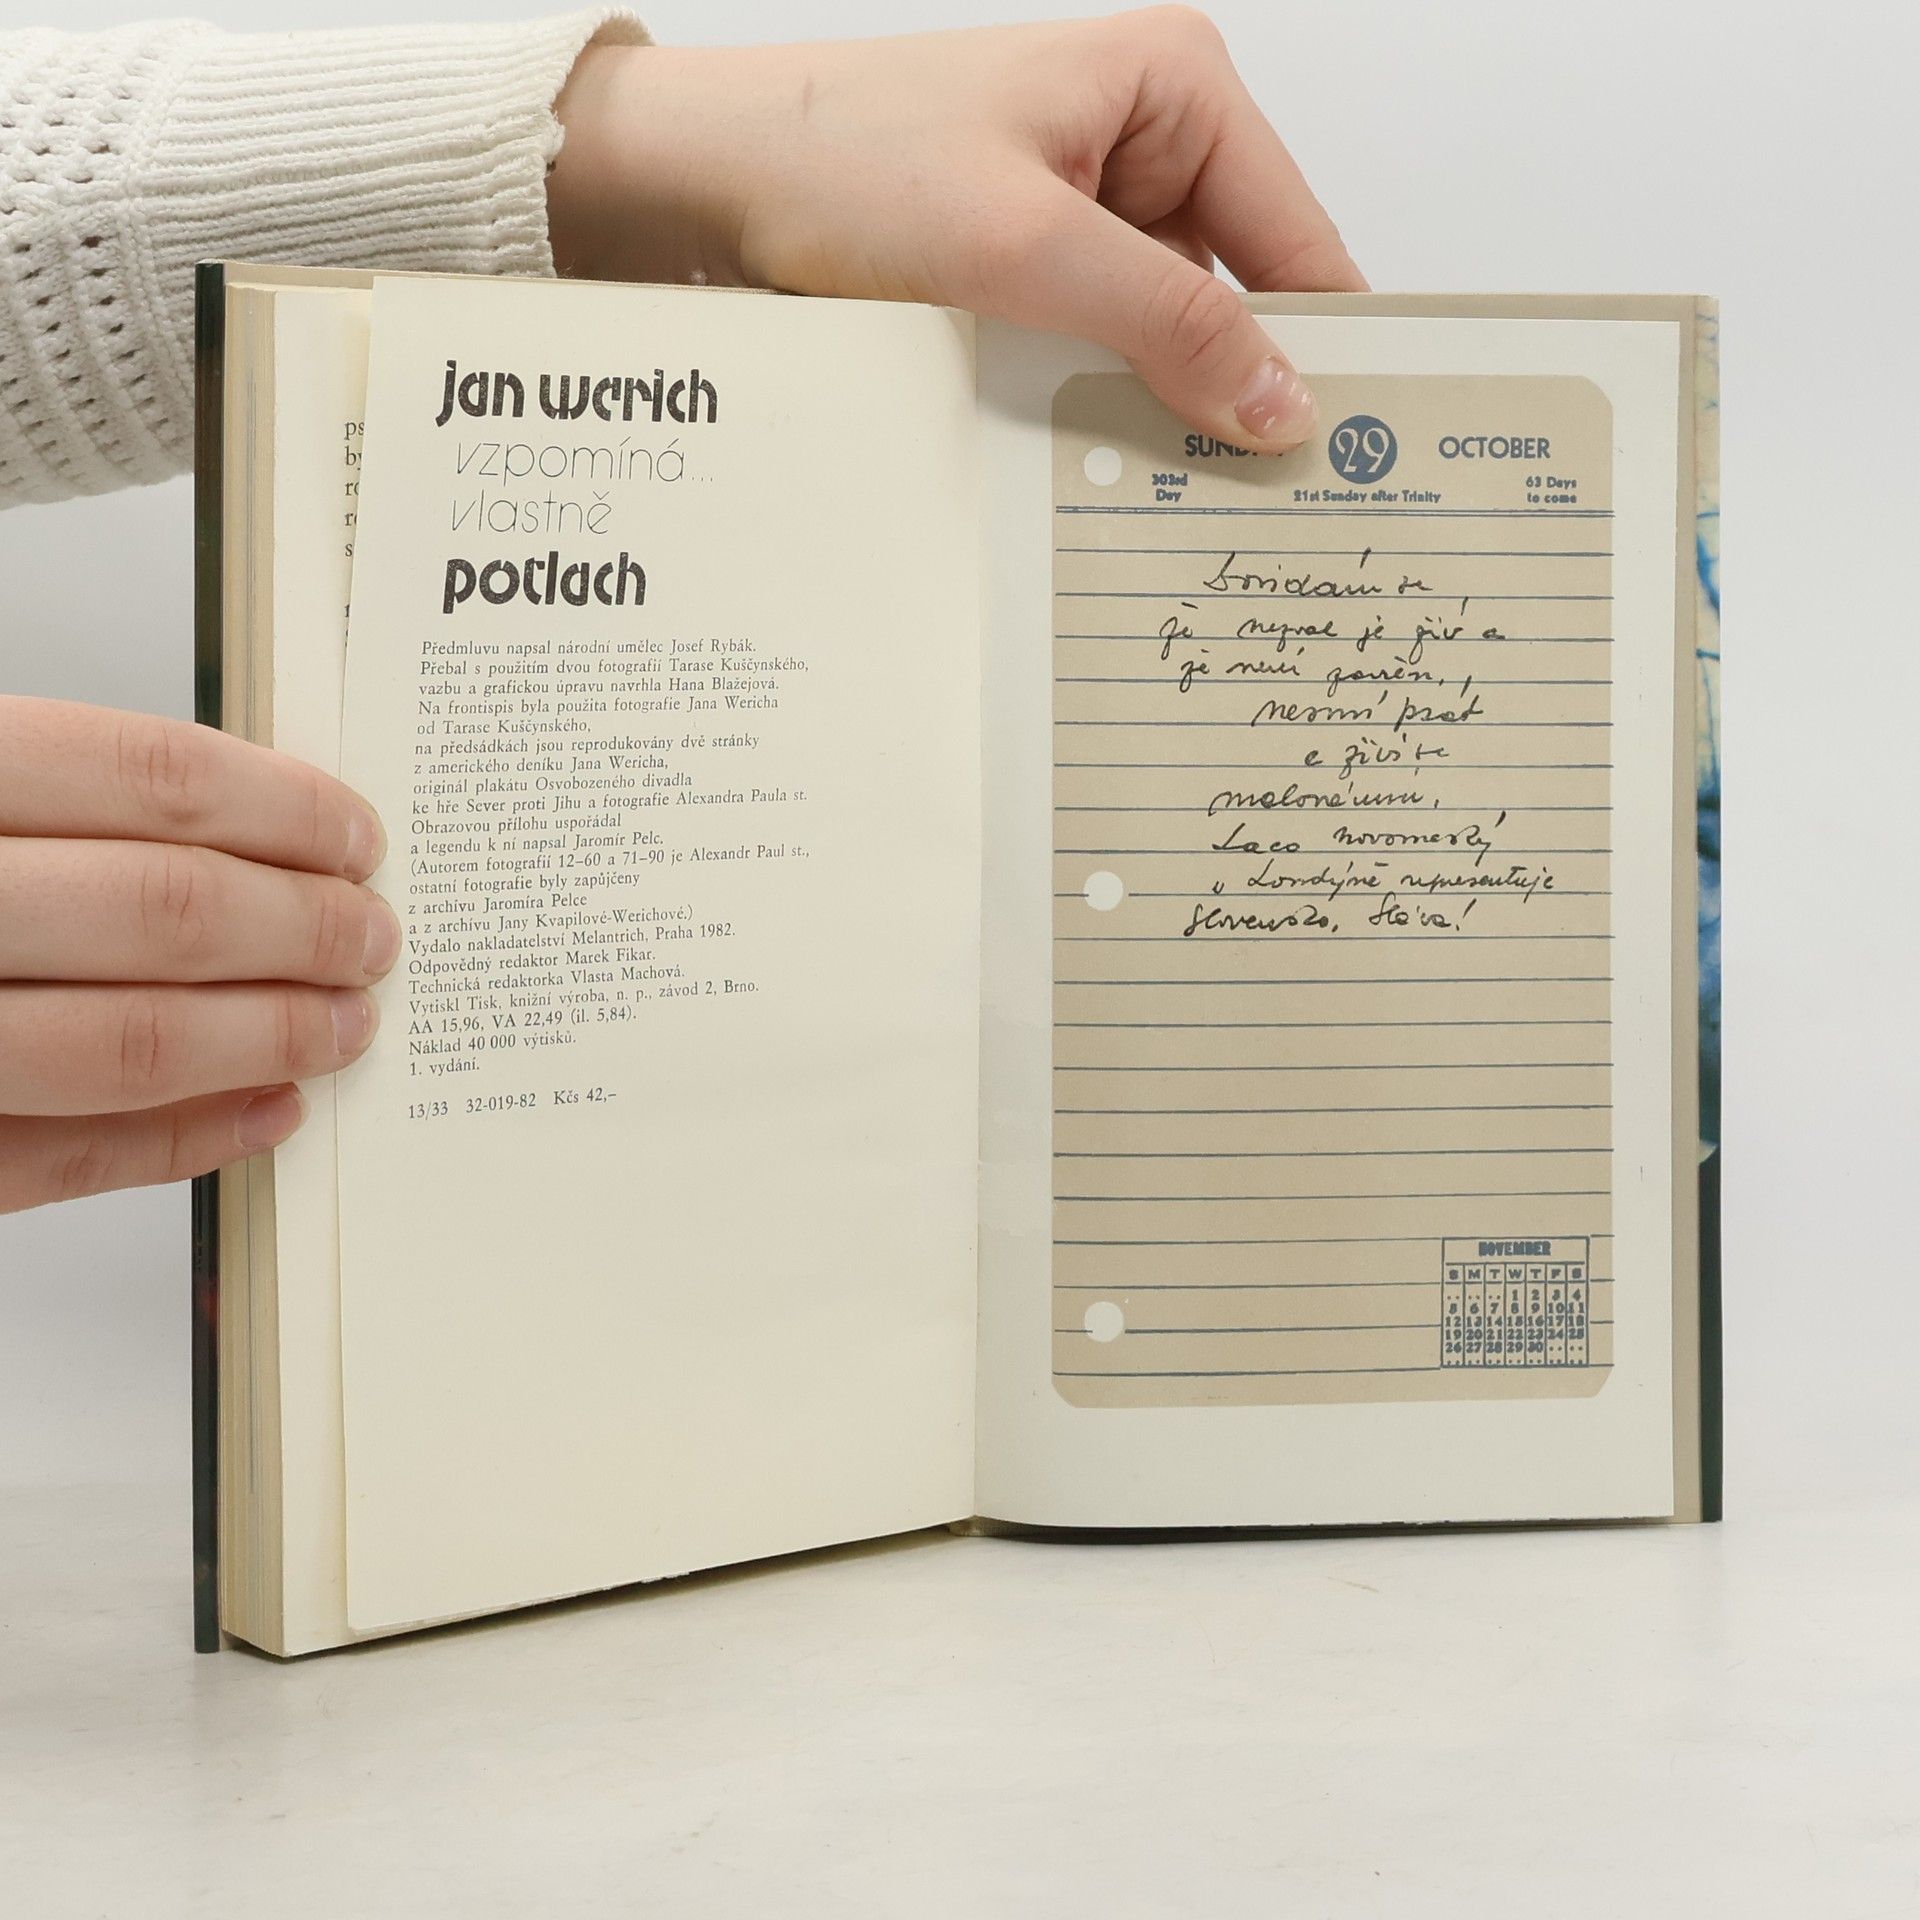 jan werich
vzpomíná...
vlastně
potlach
Předmluvu napsal národní umělec Josef Rybák.
Přebal s použitím dvou fotografií Tarase Kuščynského,
vazbu a grafickou úpravu navrhla Hana Blažejová.
Na frontispis byla použita fotografie Jana Wericha
od Tarase Kuščynského,
na předsádkách jsou reprodukovány dvě stránky
z amerického deníku Jana Wericha,
originál plakátu Osvobozeného divadla
ke hře Sever proti Jihu a fotografie Alexandra Paula st.
Obrazovou přílohu uspořádal
a legendu k ní napsal Jaromír Pelc.
(Autorem fotografií 12–60 a 71–90 je Alexandr Paul st.,
ostatní fotografie byly zapůjčeny
z archívu Jaromíra Pelce
a z archívu Jany Kvapilové-Werichové.)
Vydalo nakladatelství Melantrich, Praha 1982.
Odpovědný redaktor Marek Fikar.
Technická redaktorka Vlasta Machová.
Vytiskl Tisk, knižní výroba, n. p., závod 2, Brno.
AA 15,96, VA 22,49 (il. 5,84).
Náklad 40 000 výtisků.
1. vydání.
13/33 32-019-82 Kčs 42,–
29 OCTOBER
303rd
Day
21st Sunday after Trinity
63 Days
to come
Dovídám se,
že nezval je živ a
že není zavřen,
nesmí psát
a živí se
malováním.
Laco Novomeský
v Londýně representuje
Slovensko. Sláva!
NOVEMBER
S M T W T F S
.. .. .. 1 2 3 4
5 6 7 8 9 10 11
12 13 14 15 16 17 18
19 20 21 22 23 24 25
26 27 28 29 30 .. ..